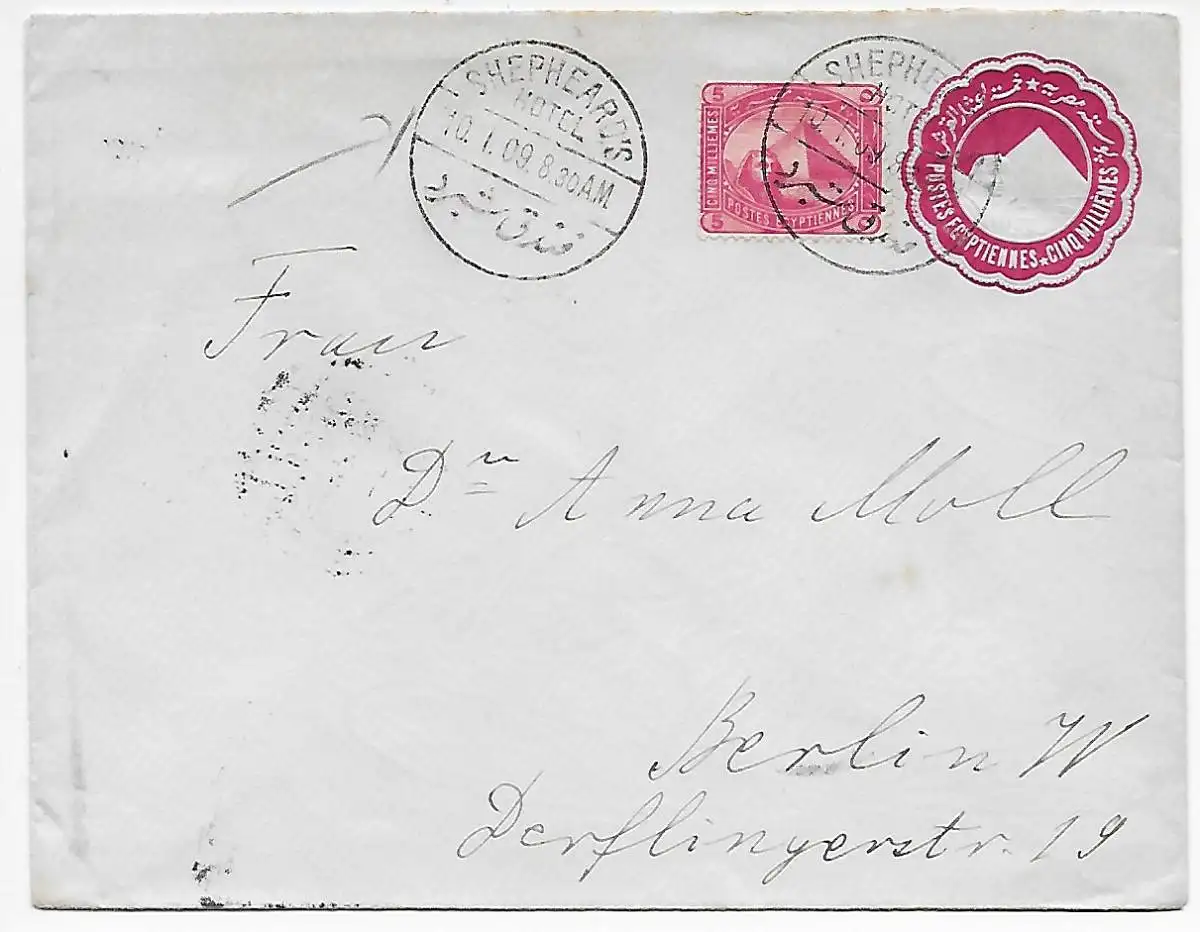 SHEPHEARD'S
HOTEL
10. I. 09. 8.30 AM.
فندق شبرد
5 5
CINQ MILLIEMES
POSTES EGYPTIENNES
5
SHEPHE
HOT
10. I. 09
فندق شبرد
POSTES EGYPTIENNES ★ CINQ MILLIEMES
Frau
Dr Anna Moll
Berlin W
Derflingerstr. 19